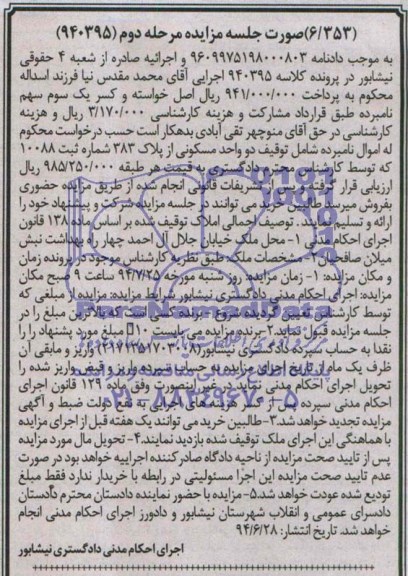 (۶/۳۵۳)صورت جلسه مزایده مرحله دوم (۹۴۰۳۹۵)
به موجب دادنامه ۹۶۰۹۹۷۵۱۹۸۰۰۰۸۰۳ و اجرائیه صادره از شعبه ۴ حقوقی
نیشابور در پرونده کلاسه ۹۴۰۳۹۵ اجرایی آقای محمد مقدس نیا فرزند اسداله
محکوم به پرداخت ۹۴۱/۰۰۰/۰۰۰ ریال اصل خواسته و کسر یک سوم سهم
نامبرده طبق قرارداد مشارکت و هزینه کارشناسی ۳/۱۷۰/۰۰۰ ریال و هزینه
کارشناسی در حق آقای منوچهر تقی آبادی بدهکار است حسب درخواست محکوم
له اموال نامبرده شامل توقیف دو واحد مسکونی از پلاک ۳۸۳ شماره ثبت ۱۰۰۸۸
که توسط کارشناس محترم دادگستری به قیمت هر طبقه ۹۸۵/۲۵۰/۰۰۰ ریال
ارزیابی قرار گرفته و پس از تشریفات قانونی انجام شده از طریق مزایده حضوری
بفروش میرسد طالبین خرید می توانند در جلسه مزایده شرکت و پیشنهاد خود را
ارائه و تسلیم نمایند. توصیف اجمالی املاک توقیف شده بر اساس ماده ۱۳۸ قانون
اجرای احکام مدنی ۱- محل ملک خیابان جلال آل احمد چهار راه بهداشت نبش
میلان صافحیان ۲- مشخصات ملک طبق نظریه کارشناس موجود در پرونده زمان
و مکان مزایده: ۱- زمان مزایده: روز شنبه مورخه ۹۴/۷/۲۵ ساعت ۹ صبح مکان
مزایده: اجرای احکام مدنی دادگستری نیشابور شرایط مزایده: مزایده از مبلغی که
توسط کارشناس تعیین گردیده شروع برنده کسی است که بالاترین مبلغ را در
جلسه مزایده قبول نماید ۲-برنده مزایده می بایست ۱۰٪ مبلغ مورد پشنهاد را
نقدا به حساب سپرده دادگستری نیشابور واریز و مابقی آن
ظرف یک ماه از تاریخ اجرای مزایده به حساب سپرده واریز و قبض واریز شده را
تحویل اجرای احکام مدنی نماید در غیر اینصورت وفق ماده ۱۲۹ قانون اجرای
احکام مدنی سپرده پس از کسر هزینه های اجرایی به نفع دولت ضبط و آگهی
مزایده تجدید خواهد شد. ۳-طالبین خرید می توانند یک هفته قبل از اجرای مزایده
با هماهنگی این اجرای ملک توقیف شده بازدید نمایند. ۴- تحویل مال مورد مزایده
پس از تایید صحت مزایده از ناحیه دادگاه صادر کننده اجراییه خواهد بود در صورت
عدم تایید صحت مزایده این اجرا مسئولیتی در رابطه با خریدار ندارد فقط مبلغ
تودیع شده عودت خواهد شد. ۵-مزایده با حضور نماینده دادستان محترم دادستان
دادسرای عمومی و انقلاب شهرستان نیشابور و دادورز اجرای احکام مدنی انجام
خواهد شد. تاریخ انتشار: ۹۴/۶/۲۸
اجرای احکام مدنی دادگستری نیشابور
ParsNamadData
۰۲۱-۸۸۳۴۹۶۷۰-۵